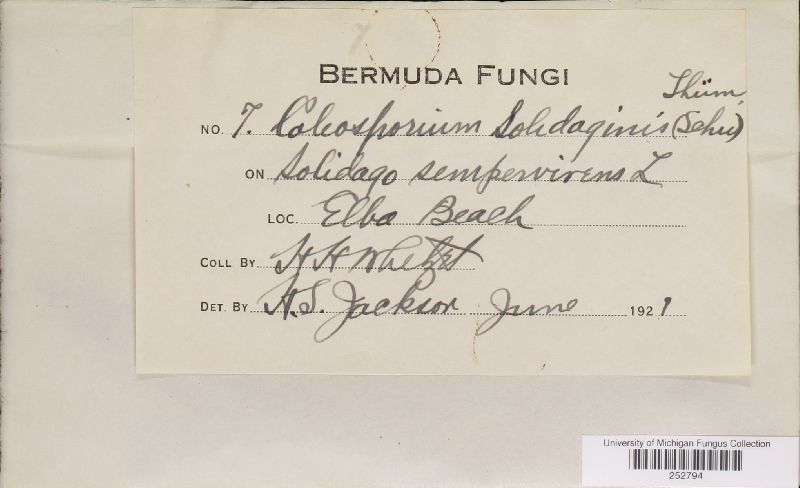 BERMUDA FUNGI
NO. 7. Coleosporium Solidaginis (Schw) Thüm.
ON Solidago sempervirens L
LOC. Elba Beach
COLL BY H H Whetzel
DET. BY H.S. Jackson June 1921
University of Michigan Fungus Collection
252794